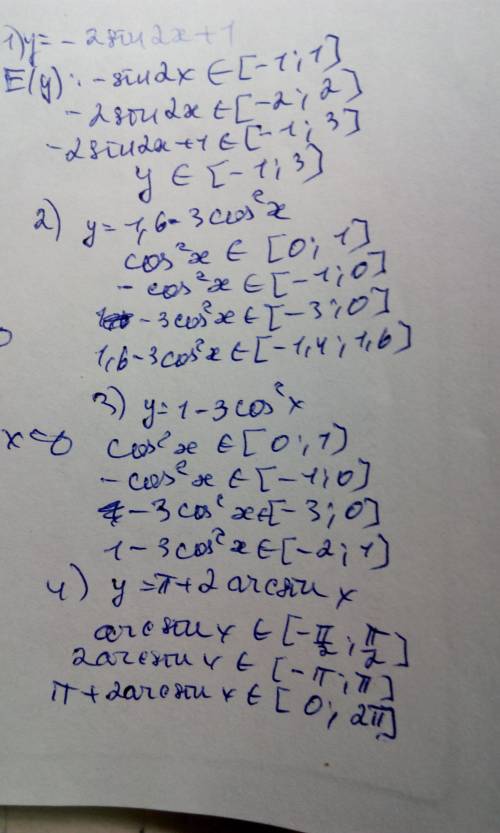 1) y = - 2 sin 2x + 1
E(y): - sin 2x ∈ [-1; 1]
- 2 sin 2x ∈ [-2; 2]
- 2 sin 2x + 1 ∈ [-1; 3]
y ∈ [-1; 3]
2) y = 1,6 - 3 cos²x
cos²x ∈ [0; 1]
- cos²x ∈ [-1; 0]
- 3 cos²x ∈ [-3; 0]
1,6 - 3 cos²x ∈ [-1,4; 1,6]
3) y = 1 - 3 cos²x
x = 0
cos²x ∈ [0; 1)
- cos²x ∈ [-1; 0]
- 3 cos²x ∈ [-3; 0]
1 - 3 cos²x ∈ [-2; 1]
4) y = π + 2 arcsin x
arcsin x ∈ [-π/2; π/2]
2 arcsin x ∈ [-π; π]
π + 2 arcsin x ∈ [0; 2π]